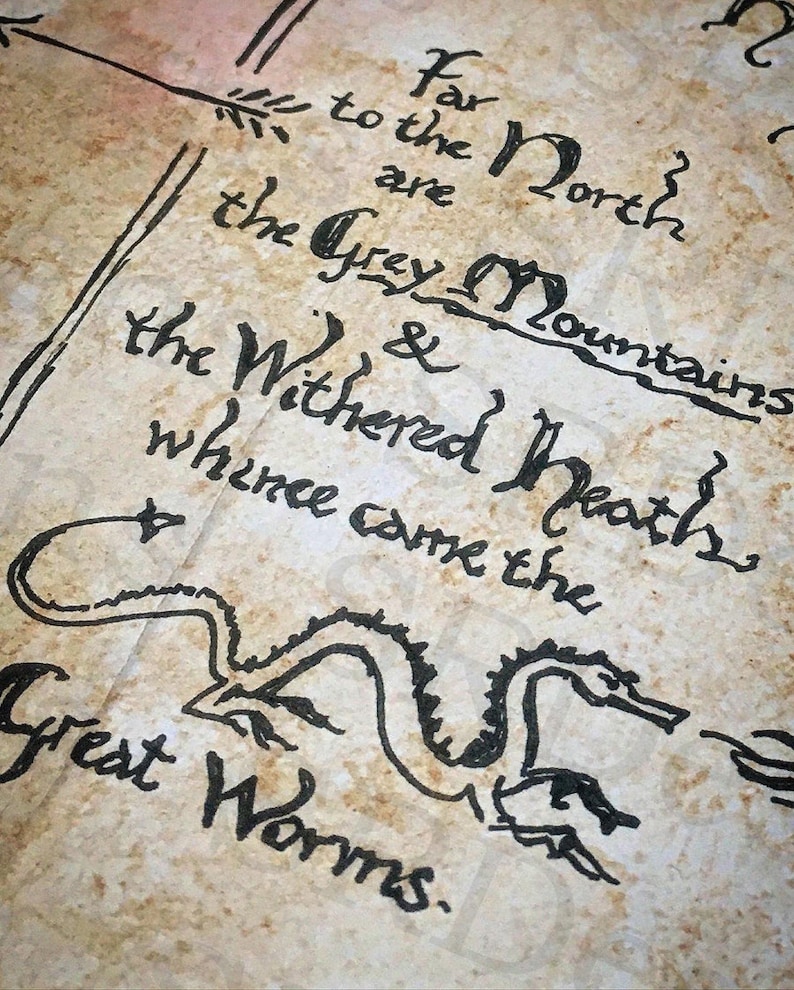 Far
to the North
are
the Grey Mountains
&
the Withered Heath
whence came the
Great Worms.